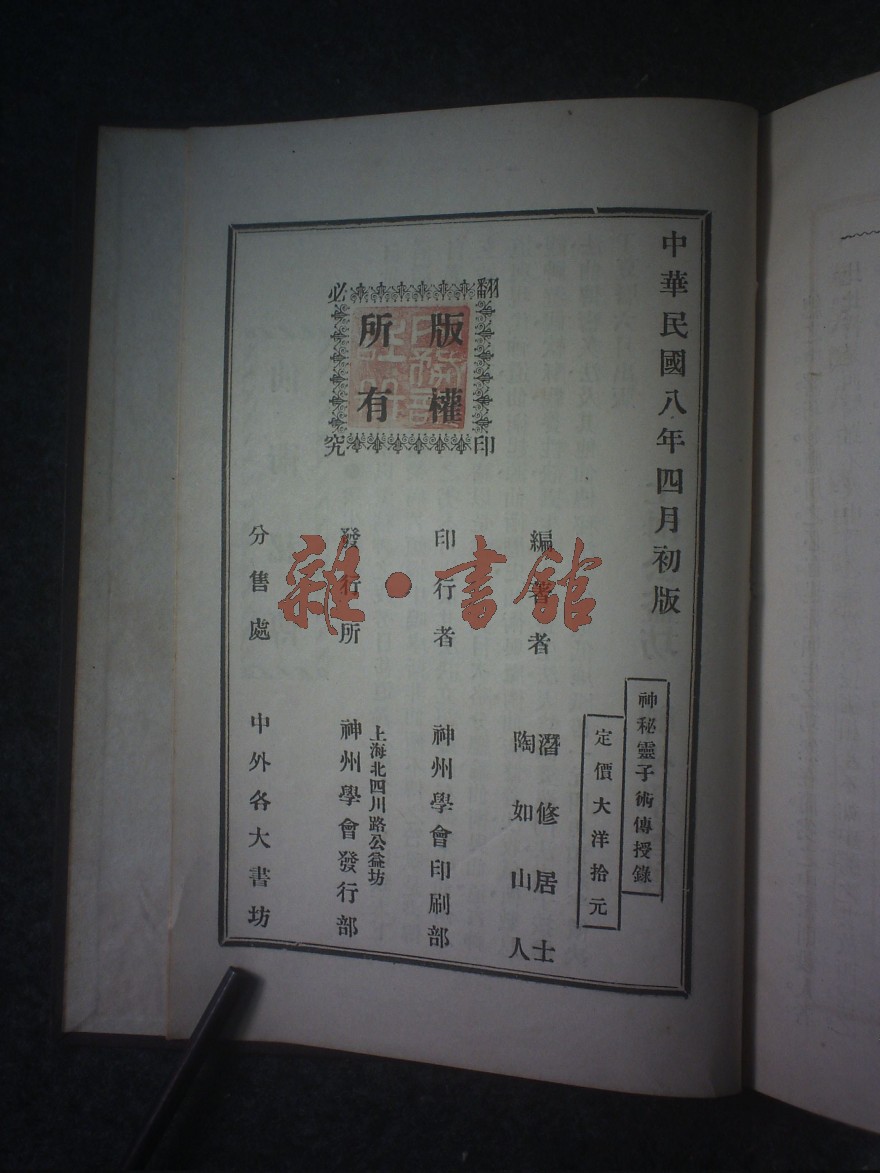 中華民國八年四月初版
神秘靈子術傳授錄
定價大洋拾元
翻印必究
版權所有
編著者
潛修居士
陶如山人
印行者
神州學會印刷部
發行所
上海北四川路公益坊
神州學會發行部
分售處
中外各大書坊
雜·書館